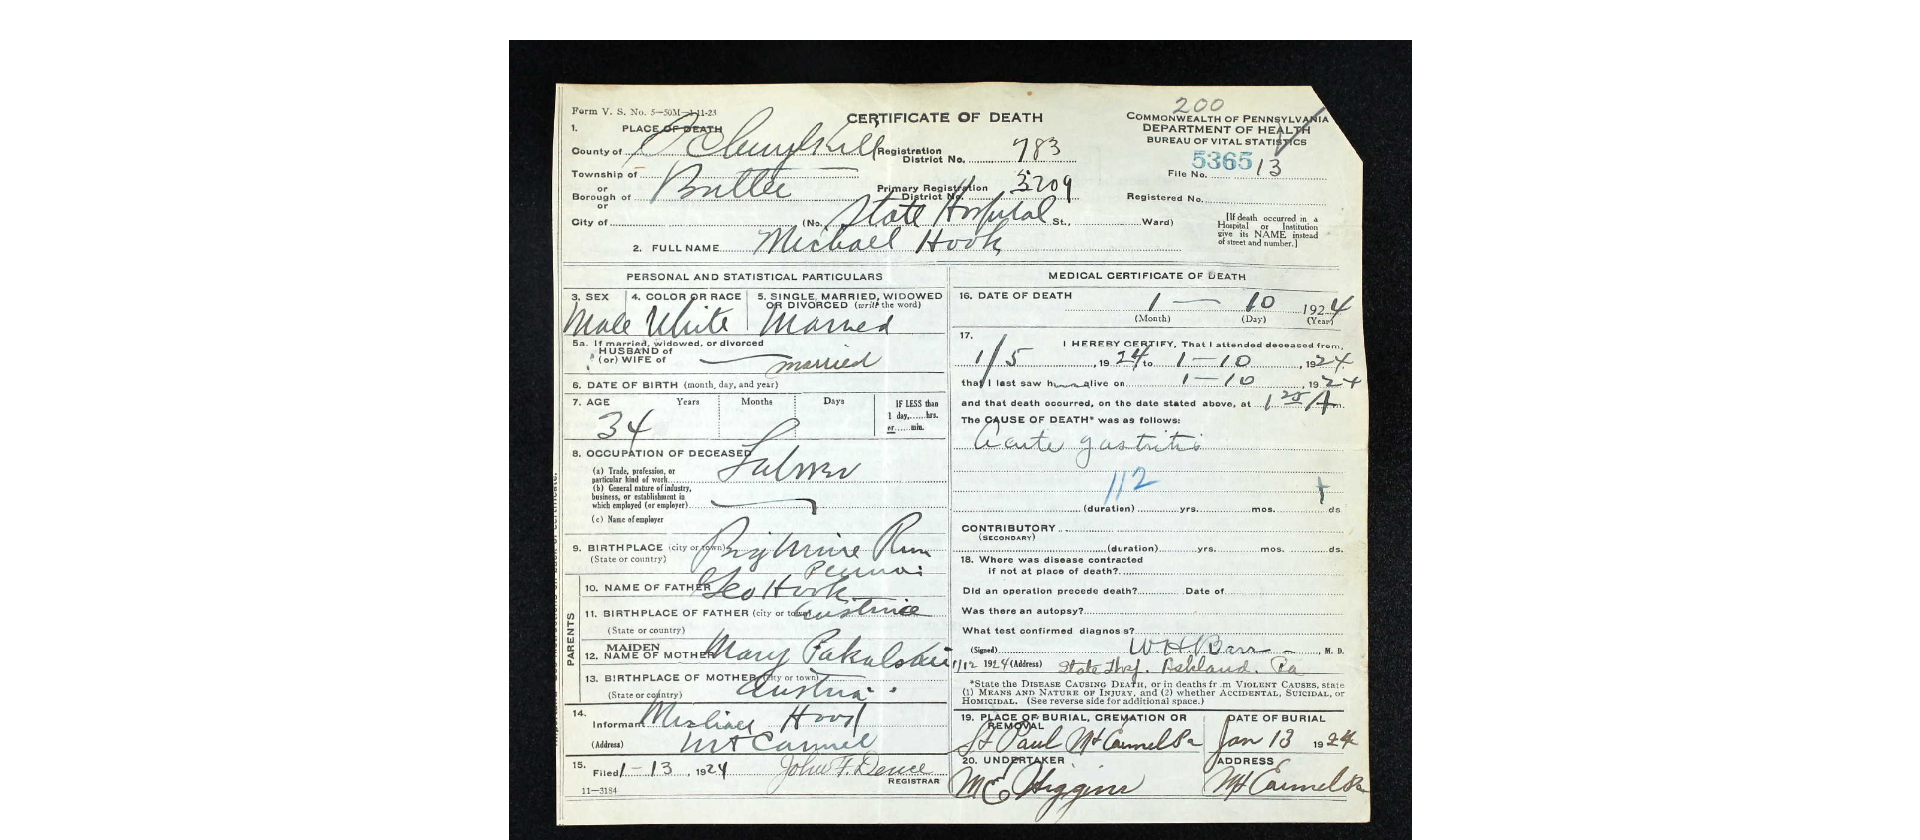 200
Form V. S. No. 5—50M—1-11-23
CERTIFICATE OF DEATH
COMMONWEALTH OF PENNSYLVANIA
DEPARTMENT OF HEALTH
BUREAU OF VITAL STATISTICS
1. PLACE OF DEATH
County of Schuylkill Registration District No. 783
File No. 5365 13
Township of
or
Borough of Butler Primary Registration District No. 3209
Registered No.
or
City of (No. State Hospital St., Ward)
[If death occurred in a
Hospital or Institution
give its NAME instead
of street and number.]
2. FULL NAME Michael Hook
PERSONAL AND STATISTICAL PARTICULARS
3. SEX 4. COLOR OR RACE 5. SINGLE, MARRIED, WIDOWED
OR DIVORCED (write the word)
Male White Married
5a. If married, widowed, or divorced
HUSBAND of
(or) WIFE of married
6. DATE OF BIRTH (month, day, and year)
7. AGE Years Months Days IF LESS than
1 day,......hrs.
or......min.
34
8. OCCUPATION OF DECEASED
(a) Trade, profession, or
particular kind of work Labor
(b) General nature of industry,
business, or establishment in
which employed (or employer)
(c) Name of employer
9. BIRTHPLACE (city or town) Big Mine Run
(State or country) Penna.
PARENTS
10. NAME OF FATHER Geo Hook
11. BIRTHPLACE OF FATHER (city or town) Austria
(State or country)
12. MAIDEN NAME OF MOTHER Mary
13. BIRTHPLACE OF MOTHER (city or town)
(State or country) Austria
14. Informant Michael Hook
(Address) Mt Carmel
15. Filed 1-13, 1924 John F.
REGISTRAR
11—3184
MEDICAL CERTIFICATE OF DEATH
16. DATE OF DEATH 1 — 10 1924
(Month) (Day) (Year)
17. I HEREBY CERTIFY, That I attended deceased from,
1/5, 1924 to 1—10, 1924
that I last saw h alive on 1—10, 1924
and that death occurred, on the date stated above, at 1 25 A m.
The CAUSE OF DEATH* was as follows:
Acute gastritis
112
(duration) yrs. mos. ds
CONTRIBUTORY
(SECONDARY)
(duration) yrs. mos. ds.
18. Where was disease contracted
if not at place of death?
Did an operation precede death? Date of
Was there an autopsy?
What test confirmed diagnosis?
(Signed) W H Barr, M. D.
1/12 1924 (Address) State Hosp. Ashland. Pa
*State the DISEASE CAUSING DEATH, or in deaths from VIOLENT CAUSES, state
(1) MEANS AND NATURE OF INJURY, and (2) whether ACCIDENTAL, SUICIDAL, or
HOMICIDAL. (See reverse side for additional space.)
19. PLACE OF BURIAL, CREMATION OR REMOVAL DATE OF BURIAL
St Paul Mt Carmel Pa Jan 13 1924
20. UNDERTAKER ADDRESS
M E Higgins Mt Carmel Pa